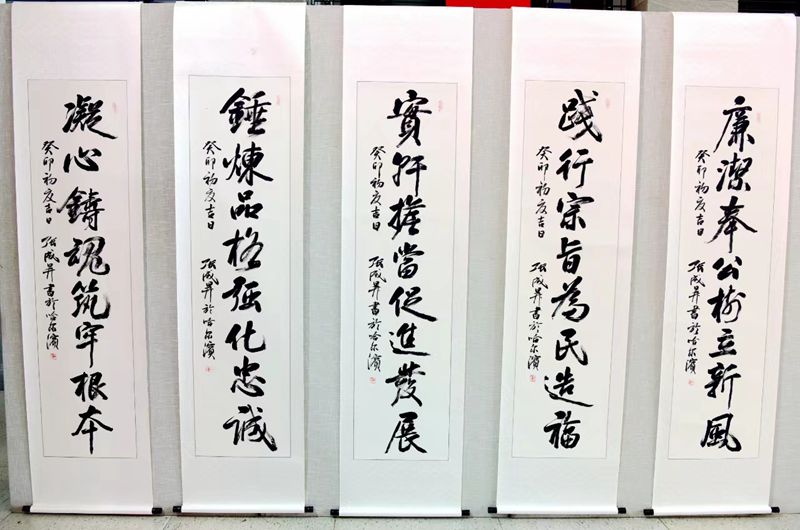 凝心鑄魂筑牢根本
癸卯初夏吉日 張成昇書於哈尔濱
錘煉品格强化忠誠
癸卯初夏吉日 張成昇於哈尔濱
實幹擔當促進發展
癸卯初夏吉日 張成昇書於哈尔濱
踐行宗旨為民造福
癸卯初夏吉日 張成昇書於哈尔濱
廉潔奉公樹立新風
癸卯初夏吉日 張成昇書於哈尔濱